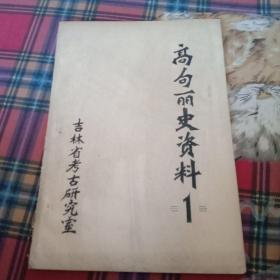 高句丽史资料
=1=
吉林省考古研究室